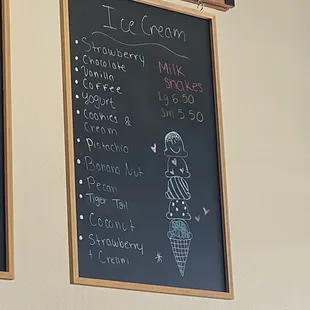 Ice Cream
• Strawberry
• Chocolate
• Vanilla
• Coffee
• Yogurt
• Cookies &
Cream
• Pistachio
• Banana Nut
• Pecan
• Tiger Tail
• Coconut
• Strawberry
+ Cream
Milk
Shakes
Lg 6.50
Sm 5.50